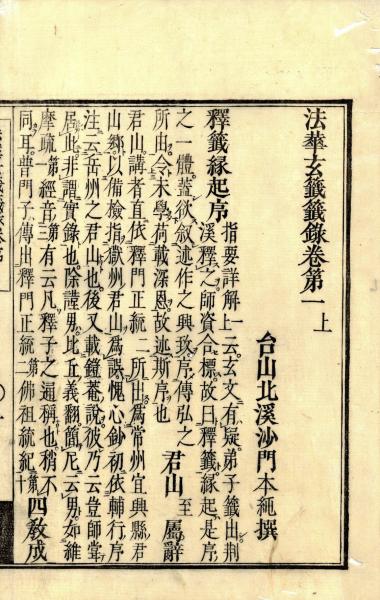 法華玄籤籤錄卷第一上
台山北溪沙門本純撰
指要詳解上云玄文有疑弟子籤出荆
釋籤緣起序溪釋之師資合標故曰釋籤緣起是序
之一體蓋欲叙述作之興致序傳弘之
所由令末學荷載深恩故述斯序也 君山至鳳辭
君山講者直依釋門正統二所出爲常州宜興縣君
山鄉以備檢指嶽州君山爲誤愧心鈔初依輔行序
注云岳州之君山也後又載鐘菴說彼乃云豈師當
居此非謂實錄也除謹男比丘義翻簡尼云男如維
摩疏第一經音三有云凡釋子之通稱也稍不
同耳普門子傳出釋門正統二第佛祖統紀第十四教成